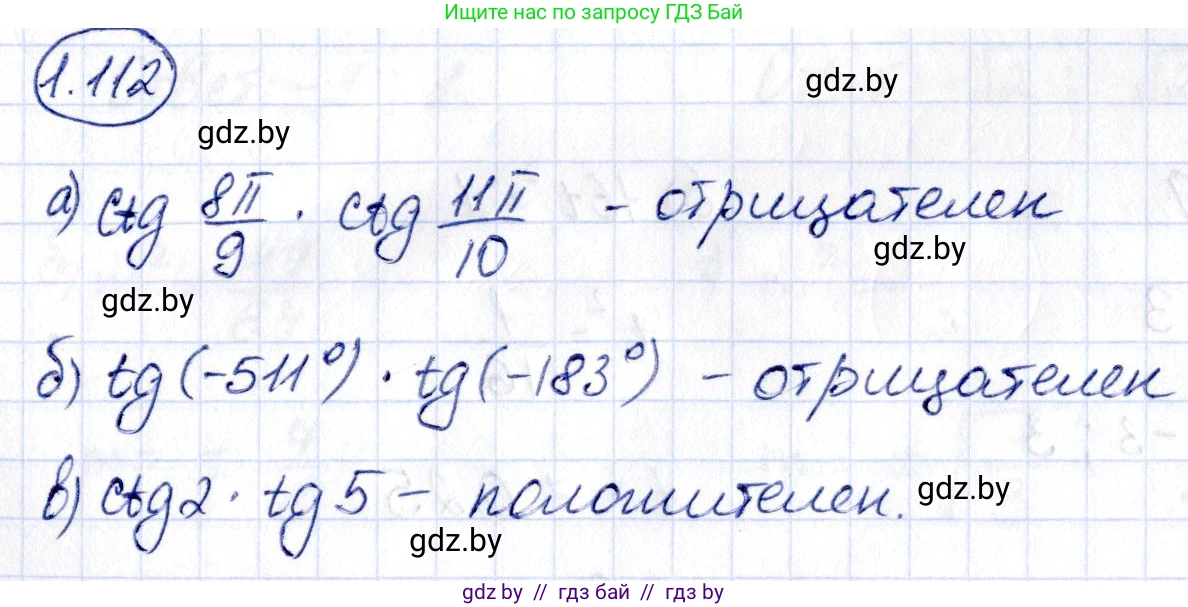 Ищите нас по запросу ГДЗ Бай
1.112
gdz.by
gdz.by
а) ctg 8π/9 · ctg 11π/10 - отрицателен
gdz.by
gdz.by
б) tg(-511°) · tg(-183°) - отрицателен
в) ctg2 · tg5 - положителен.
gdz.by
gdz.by
gdz by // гдз бай // гдз by